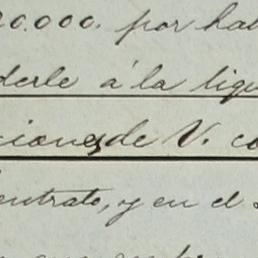 20.000. por hab
derle á la liqu
ciones de V. co
ontrato, y en el